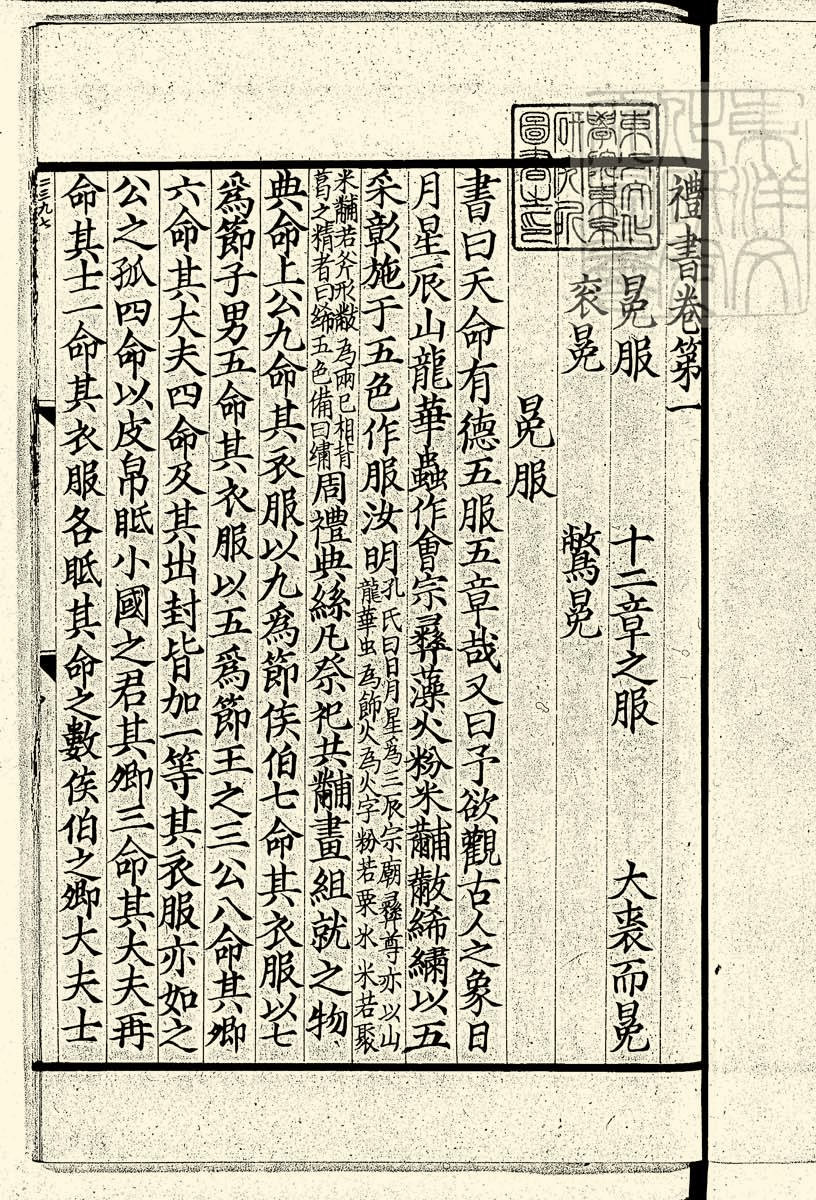 禮書卷第一
冕服　十二章之服　大裘而冕
衮冕　鷩冕
冕服
書曰天命有德五服五章哉又曰予欲觀古人之象日
月星辰山龍華蟲作會宗彝藻火粉米黼黻絺繡以五
采彰施于五色作服汝明孔氏曰日月星爲三辰宗廟彝尊亦以山
龍華虫爲飾火爲火字粉若粟氷米若聚
米黼若斧形黻爲兩已相背
葛之精者曰絺五色備曰繡周禮典絲凡祭祀共黼畫組就之物
典命上公九命其衣服以九爲節侯伯七命其衣服以七
爲節子男五命其衣服以五爲節王之三公八命其卿
六命其大夫四命及其出封皆加一等其衣服亦如之
公之孤四命以皮帛眡小國之君其卿三命其大夫再
命其士一命其衣服各眡其命之數侯伯之卿大夫士
二三九七
東方文化
學院東京
研究所
圖書之印